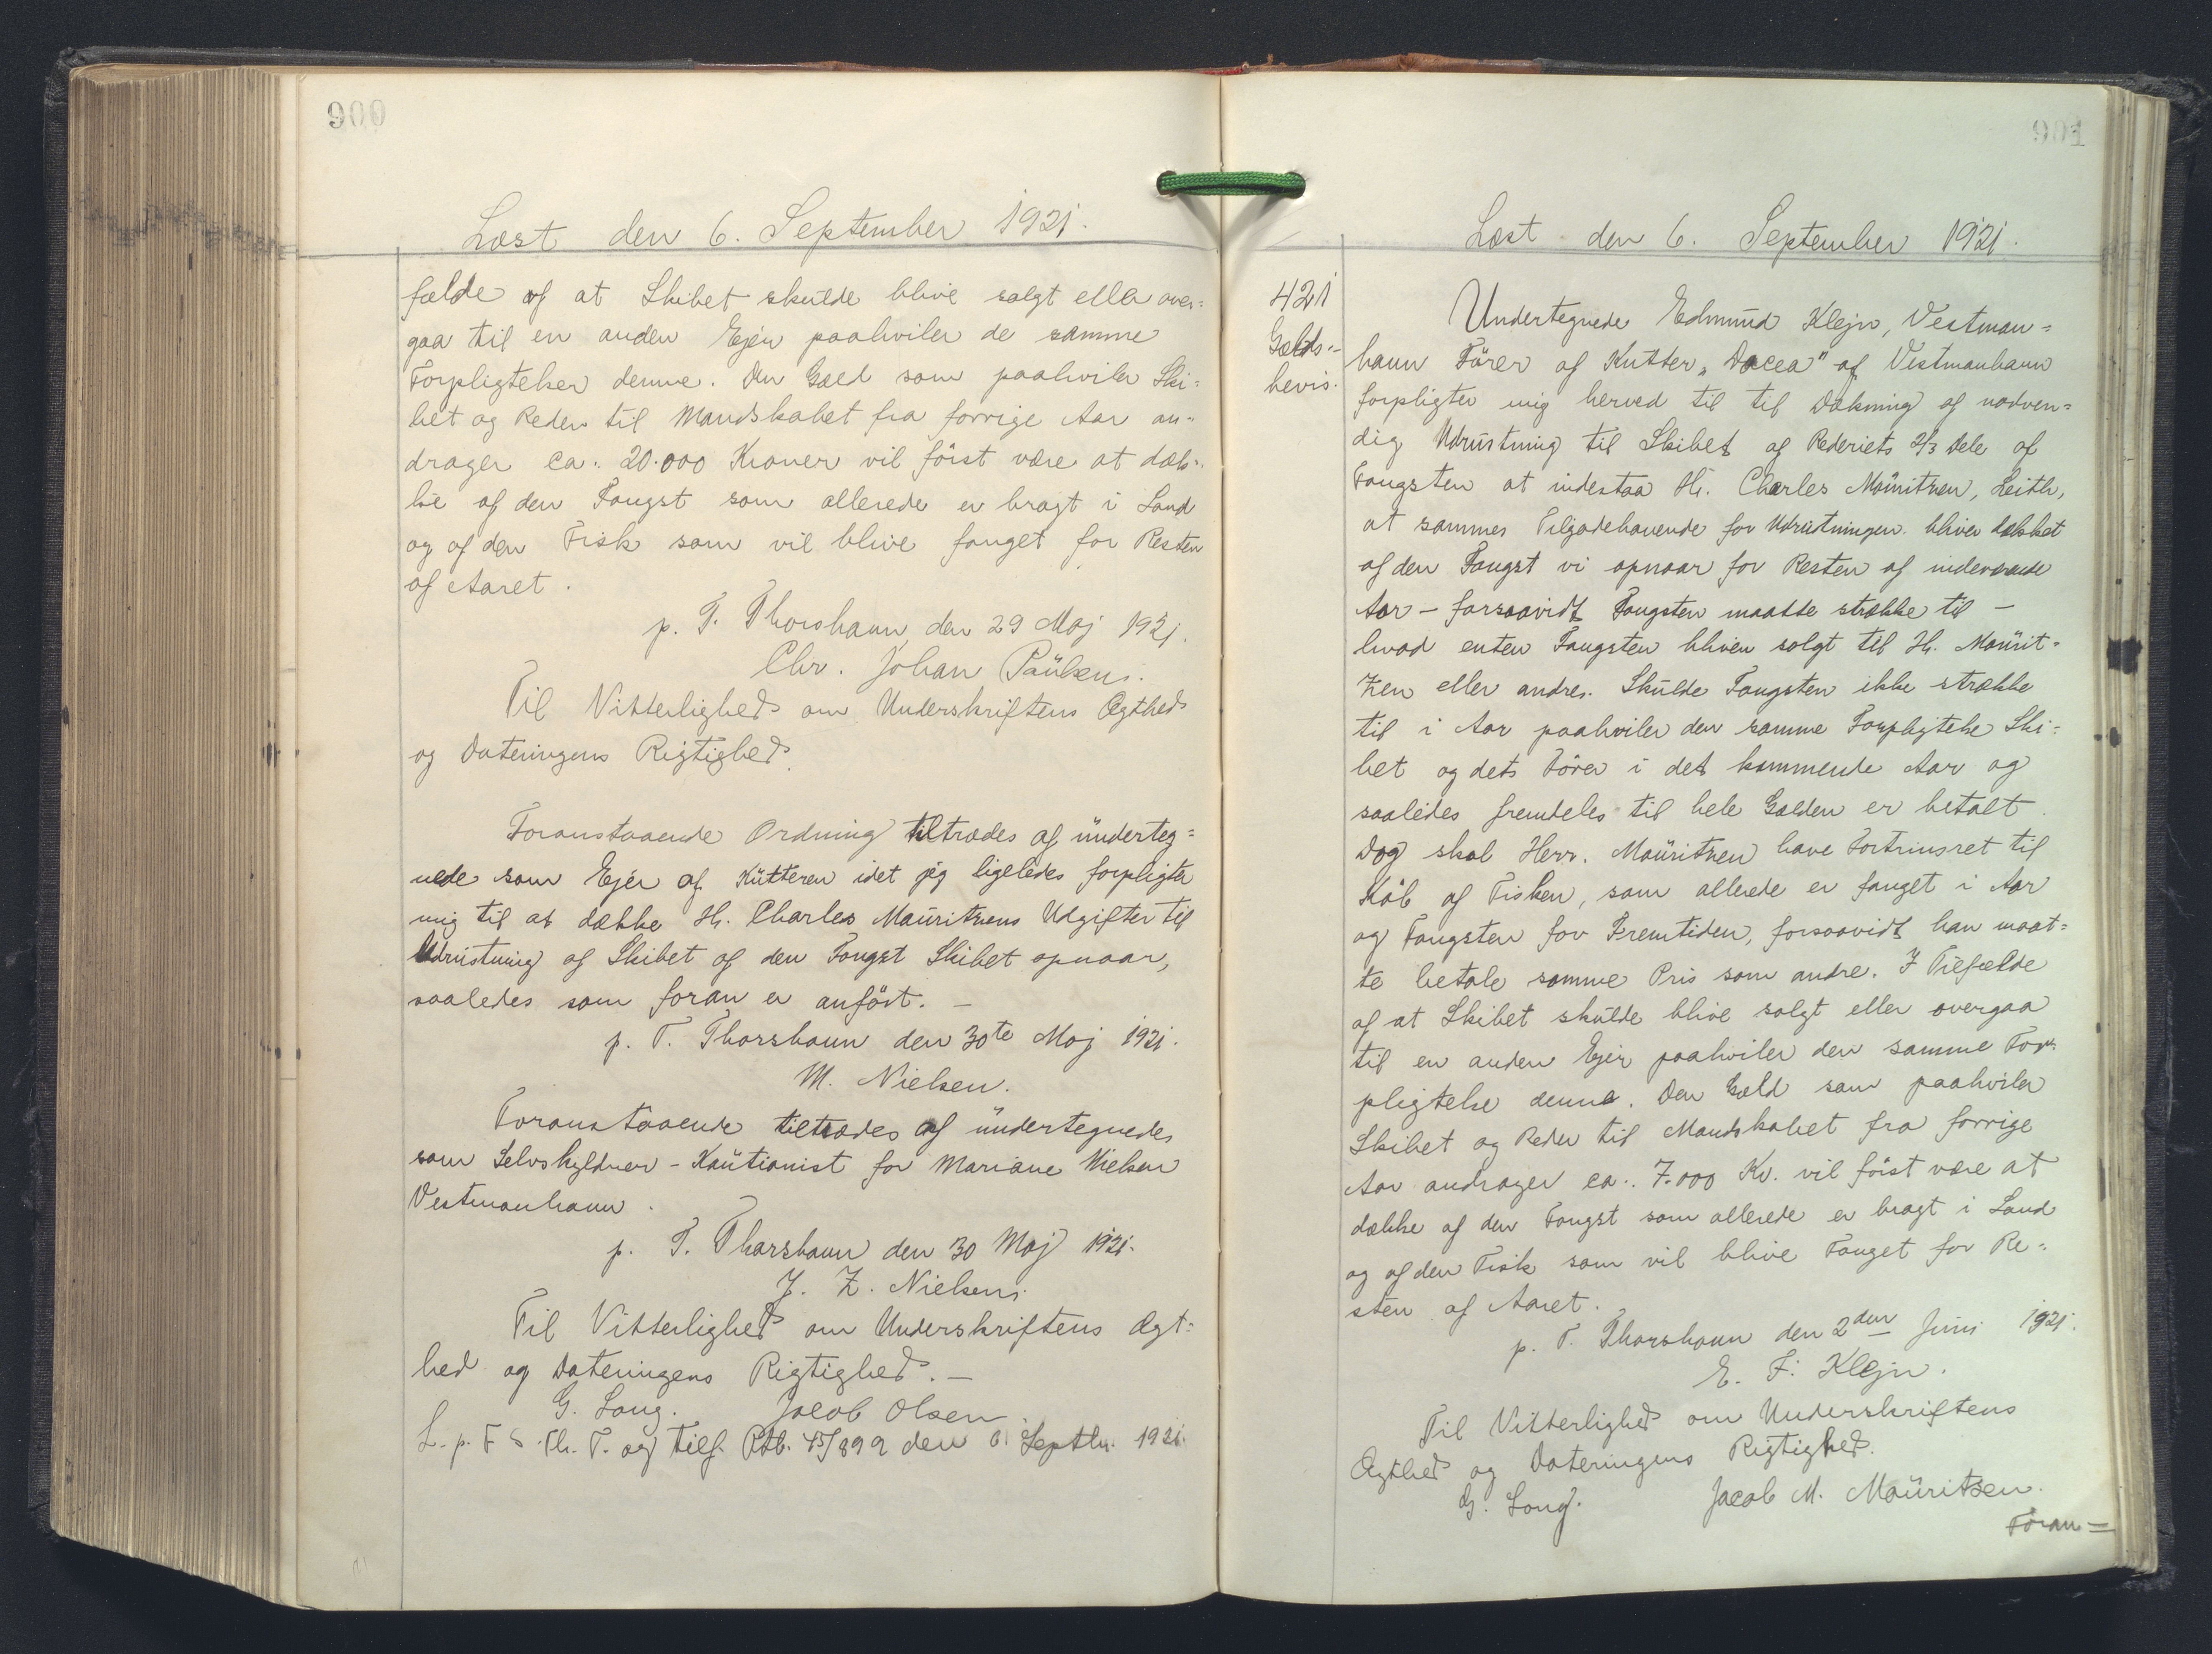 900
Læst den 6. September 1921.
fælde af at Skibet skulde blive solgt eller over=
gaa til en anden Ejer paahviler de samme
Forpligtelser denne. Den Gæld som paahviler Ski=
bet og Reder til Mandskabet fra forrige Aar an=
drager ca. 20.000 Kroner vil först være at dæk=
ke af den Fangst som allerede er bragt i Land
og af den Fisk som vil blive fanget for Resten
af Aaret.
p. T. Thorshavn, den 29 Maj 1921.
Chr. Johan Paülsen.
Til Vitterlighed om Underskriftens Ægthed
og Dateringens Rigtighed.
Foranstaaende Ordning tiltrædes af ünderteg=
nede som Ejer af Kütteren idet jeg ligeledes forpligter
mig til at dække Hr. Charles Maüritzens Udgifter til
Udrüstning af Skibet af den Fangst Skibet opnaar,
saaledes som foran er anfört. —
p. T. Thorshavn den 30te Maj 1921.
M. Nielsen.
Foranstaaende tiltrædes af ündertegnedes
som Selvskyldner-Kaütionist for Mariane Nielsen
Vestmanhavn.
p. T. Thorshavn den 30 Maj 1921.
J. Z. Nielsen.
Til Vitterlighed om Underskriftens Ægt=
hed og Dateringens Rigtighed. —
G. Long. Jacob Olsen.
L. p. F S. Th. T. og tilf. Ptb. 45/899 den 6. Septbr. 1921.
901
Læst den 6. September 1921.
421
Gælds=
bevis.
Undertegnede Edmünd Klejn, Vestman=
havn Förer af Kutter „Dacea" af Vestmanhavn
forpligter mig herved til til Dækning af nødven=
dig Udrüstning til Skibet af Rederiets 2/3 Dele af
Fangsten at indestaa Hr. Charles Maüritzen, Leith,
at sammes Tilgodehavende for Udrüstningen bliver dækket
af den Fangst vi opnaar for Resten af indeværende
Aar — forsaavidt Fangsten maatte strække til —
hvad enten Fangsten bliver solgt til Hr. Maürit=
zen eller andres. Skülde Fangsten ikke strække
til i Aar paahviler den samme Forpligtelse Ski=
bet og dets Förer i det kommende Aar og
saaledes fremdeles til hele Gælden er betalt.
Dog skal Herr. Maüritzen have Fortrinsret til
Köb af Fisken, som allerede er fanget i Aar
og Fangsten for Fremtiden, forsaavidt han maat=
te betale samme Pris som andre. I Tilfælde
af at Skibet skülde blive solgt eller overgaa
til en anden Ejer paahviler den samme For=
pligtelse denne. Den Gæld som paahviler
Skibet og Reder til Mandskabet fra forrige
Aar andrager ca. 7.000 Kr. vil först være at
dække af den Fangst som allerede er bragt i Land
og af den Fisk som vil blive Fanget for Re=
sten af Aaret.
p. T. Thorshavn den 2den Juni 1921.
E. F. Klejn.
Til Vitterlighed om Underskriftens
Ægthed og Dateringens Rigtighed.
G. Long. Jacob M. Maüritsen.
Foran=